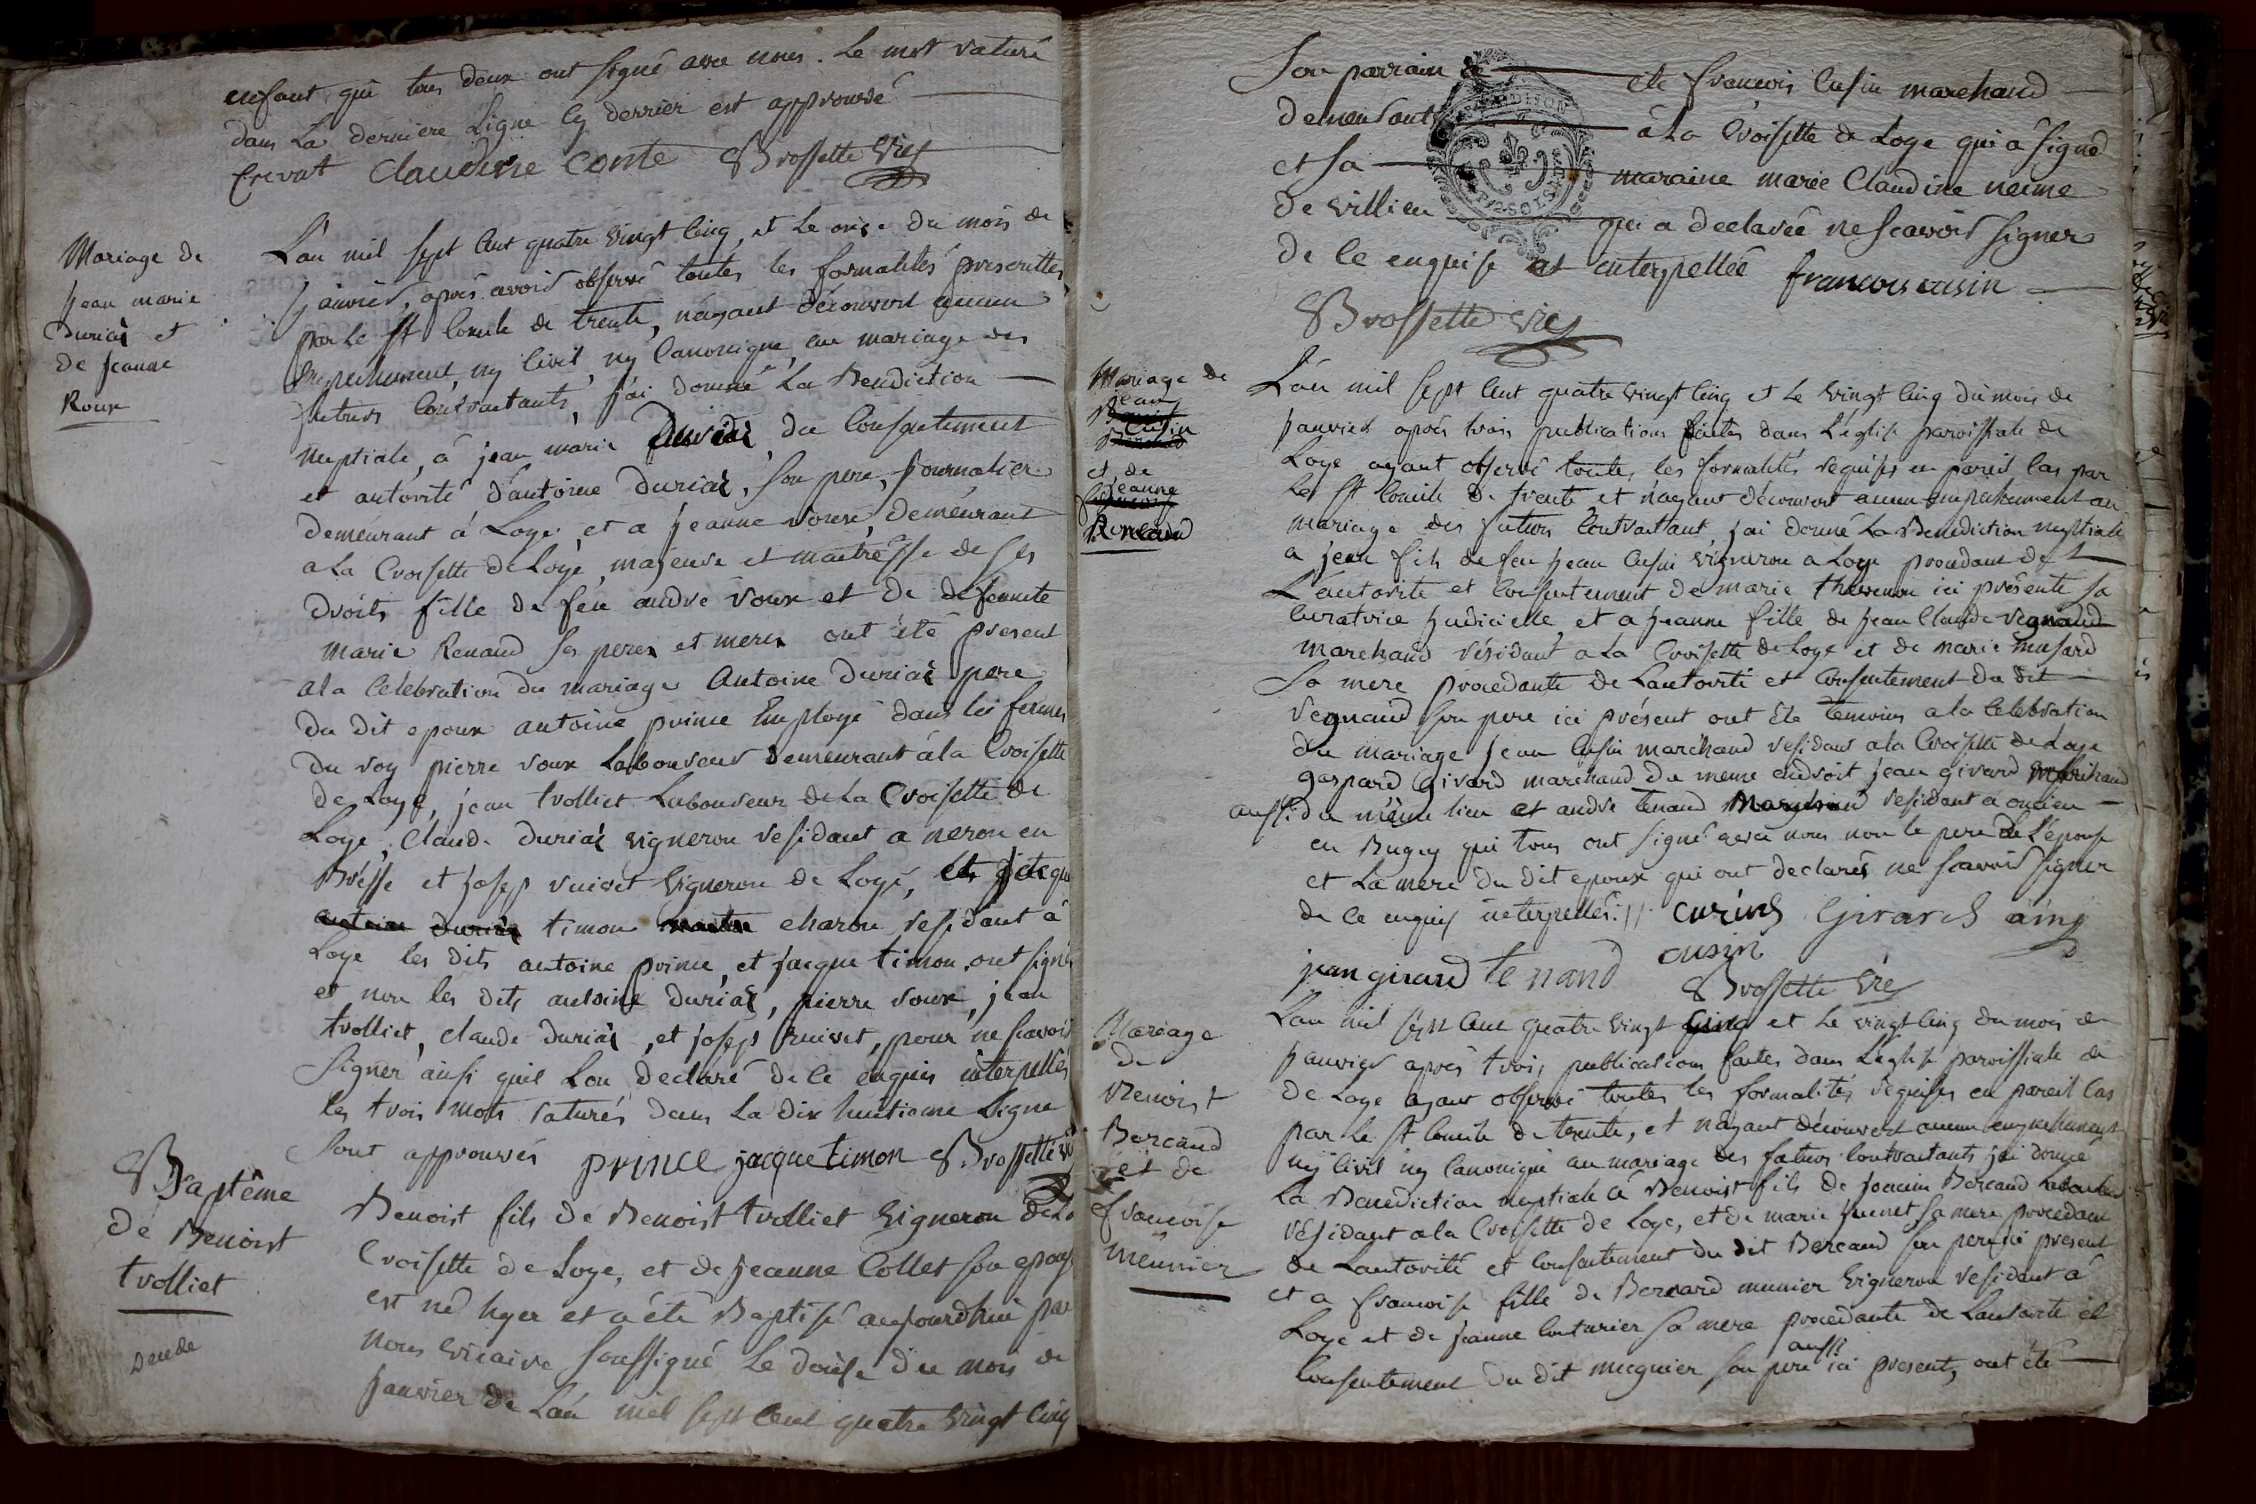 enfant qui tous deux ont signé avec nous. Le mot raturé
dans La derniere Ligne cy derrier est approuvé
Crevat Claudine Conte Brossette vic
Mariage de
jean marie
Duriaì et
de jeanne
Roux
L'an mil sept cent quatre vingt cinq, et Le onze du mois de
janvier, aprés avoir observé toutes les formalités prescrittes
par Le st Concile de trente, n'ayant découvert aucun
Empechement, ny civil, ny Canonique, au mariage des
futurs Contractants, j'ai donné La Benediction
nuptiale, à jean marie Duriaì, du Consentement
et autorité d'antoine Duriaì, son pere, journalier
demeurant à Loye, et a jeanne roux, demeurant
a La Croisette de Loye, majeure et maitresse de ses
droits fille de feu andré roux et de defunte
marie Renaud ses peres et meres ont été present
a la Celebration du mariage Antoine Duriaì pere
du dit epoux antoine prince Employé dans les fermes
du roy pierre roux Laboureur demeurant à la Croisette
de Loye, jean trolliet Laboureur de La Croisette de
Loye, Claude Duriaì vigneron residant a neron en
Bresse et josep ruivet vigneron de Loye, et jacque
antoine Duriaì timon charon residant à
Loye les dits antoine prince, et jacque timon ont signé
et non les dits antoine Duriaì, pierre roux, jean
trolliet, claude Duriaì, et josep Ruivet, pour ne scavoir
signer ainsi quil Lon declaré de ce enquis interpellés
les trois mots raturés dans La dix huitieme Ligne
sont approuvés prince jacque timon Brossette vic
Baptême
de Benoist
trolliet
Benoist fils de Benoist trolliet vigneron de La
Croisette de Loye, et de jeanne Collet son epouse
est né hyer et a été Baptisé aujourdhui par
nous vicaire soussigné Le douze du mois de
janvier de L'an mil sept cent quatre vingt cinq
Son parrain a été francois Cusin marchand
demeurant à La Croisette de Loye qui a signé
et sa maraine marie Claudine neime
de villieu qui a declarée ne scavoir signer
de ce enquise et interpellée francois cusin
Brossette vic
Mariage de
jean
Cusin
et de
jeanne
Renaud
L'an mil sept cent quatre vingt cinq et Le vingt cinq du mois de
janvier aprés trois publications faites dans L'église paroissiale de
Loye ayant observé toutes les formalités requises en pareil cas par
Le st Concile de trente et n'ayant découvert aucun empechement au
mariage des futurs Contractant, j'ai donné La Benediction nuptiale
a jean fils de feu jean Cusin vigneron a Loye procedant de
L'autorité et Consentement de marie thevenon ici présente sa
curatrice judicielle et a jeanne fille de jean Claude regnaud
marchand résidant a La Croisette de Loye et de marie musard
sa mere procedante de Lautorité et Consentement du dit
regnaud son pere ici présent ont été temoins a la Celebration
du mariage jean Cusin marchand residant a la Croisette de Loye
gaspard Girard marchand du meme endroit jean girard marchand
aussi du même lieu et andré tenand marchand residant a oncieu
en Bugey qui tous ont signé avec nous non le pere de L'épouse
et La mere du dit epoux qui ont declarés ne scavoir signer
de ce enquis interpellés. // cusin Girard ainé
jean girard tenand cusin
Brossette vic
Mariage
de
Benoist
Bercand
et de
francoise
meunier
L'an mil sept cent quatre vingt cinq et Le vingt cinq du mois de
janvier aprés trois publications faites dans L'eglise paroissiale de
de Loye ayant observé toutes les formalités requises en pareil cas
par Le st Concile de trente, et n'ayant découvert aucun empechement
ny civil ny Canonique au mariage des futurs Contractants j'ai donné
La Benediction nuptiale à Benoist fils de joacim Bercand
résidant a la Croisette de Loye, et de marie juenet sa mere procedant
de Lautorité et Consentement du dit Bercand son pere ici present
et a francoise fille de Bernard munier vigneron residant à
Loye et de jeanne Couturier sa mere procedante de Lautorité et
Consentement du dit mugnier son pere aussi ici present, ont été